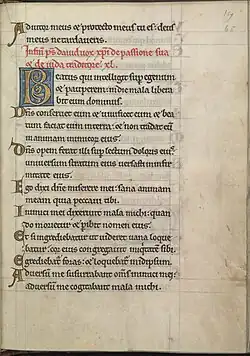 Adiutor meus et protector meus tu es: deus
meus ne tardaueris.
In finē ps dauid uox xp̄i de passione sua
et de iuda traditore. xl.
Beatus qui intelligit sup egenum
et pauperem: in die mala libera
bit eum dominus.
Dn̄s conseruet eum et uiuificet eum et bea
tum faciat eum in terra: et non tradat eū
in animam inimicor eius.
Dn̄s opem ferat illi sup lectum doloris ei:
uniuersum stratum eius uersasti in infir
mitate eius.
Ego dixi dn̄e miserere mei: sana animam
meam quia peccaui tibi.
Inimici mei dixerunt mala michi: quan
do morietur et pibit nomen eius.
Et si ingrediebatur ut uideret uana loque
batur: cor eius congregauit iniquitatē sibi.
Egrediebat foras: et loquebat in idipsum.
Aduersū me susurrabant om̄s inimici mei:
aduersū me cogitabant mala michi.